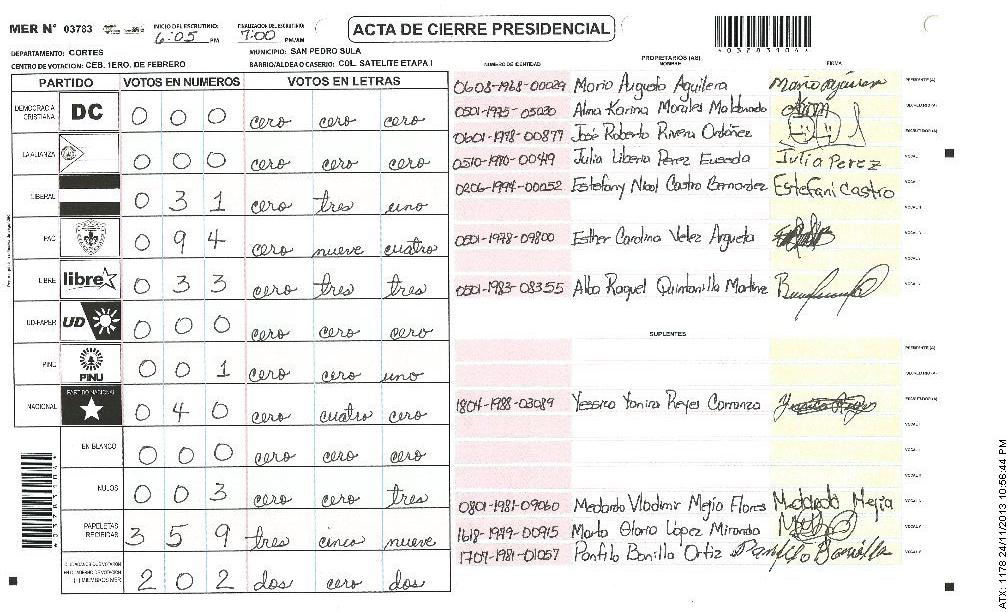 MER N° 03783 INICIO DEL ESCRUTINIO: 6:05 PM FINALIZACION DEL ESCRUTINIO: 7:00 PM/AM ACTA DE CIERRE PRESIDENCIAL
DEPARTAMENTO: CORTES MUNICIPIO: SAN PEDRO SULA
CENTRO DE VOTACION: CEB. 1ERO. DE FEBRERO BARRIO/ALDEA O CASERIO: COL. SATELITE ETAPA I
PARTIDO VOTOS EN NUMEROS VOTOS EN LETRAS
DEMOCRACIA CRISTIANA DC 0 0 0 cero cero cero
LA ALIANZA 0 0 0 cero cero cero
LIBERAL 0 3 1 cero tres uno
PAC 0 9 4 cero nueve cuatro
LIBRE libre 0 3 3 cero tres tres
UD-FAPER UD 0 0 0 cero cero cero
PINU PINU 0 0 1 cero cero uno
NACIONAL PARTIDO NACIONAL 0 4 0 cero cuatro cero
EN BLANCO 0 0 0 cero cero cero
NULOS 0 0 3 cero cero tres
PAPELETAS RECIBIDAS 3 5 9 tres cinco nueve
2 0 2 dos cero dos
PROPIETARIOS (AS)
NUMERO DE IDENTIDAD NOMBRE FIRMA
0608-1968-00029 Mario Augusto Aguilera
0501-1975-05030 Alma Karina Morales Maldonado
0601-1978-00877 José Roberto Rivera Ordóñez
0510-1980-00419 Julia Liberia Perez Euceda Julia Perez
0206-1994-00052 Estefany Nicol Castro Bernardez Estefani Castro
0501-1978-09800 Esther Carolina Velez Argueta
0501-1983-08355 Alba Raquel Quintanilla Martine
SUPLENTES
1804-1988-03089 Yessica Yanira Reyes Carranza
0801-1981-09060 Medardo Vladimir Mejia Flores Medardo Mejia
1618-1979-00915 Marta Gloria López Miranda
1707-1981-01057 Panfilo Bonilla Ortiz Panfilo Bonilla
ATX: 1178 24/11/2013 10:56:44 PM